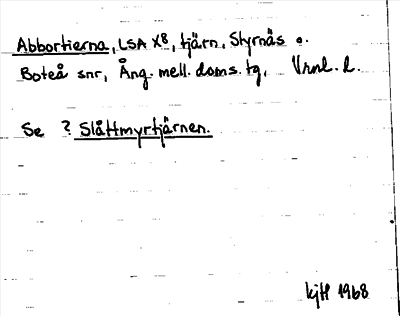 Abbortjerna, LSA X8, tjärn, Styrnäs o.
Boteå snr, Ång. mell. doms. tg, Vrnl. l.
Se ? Slåttmyrtjärnen.
kjH 1968